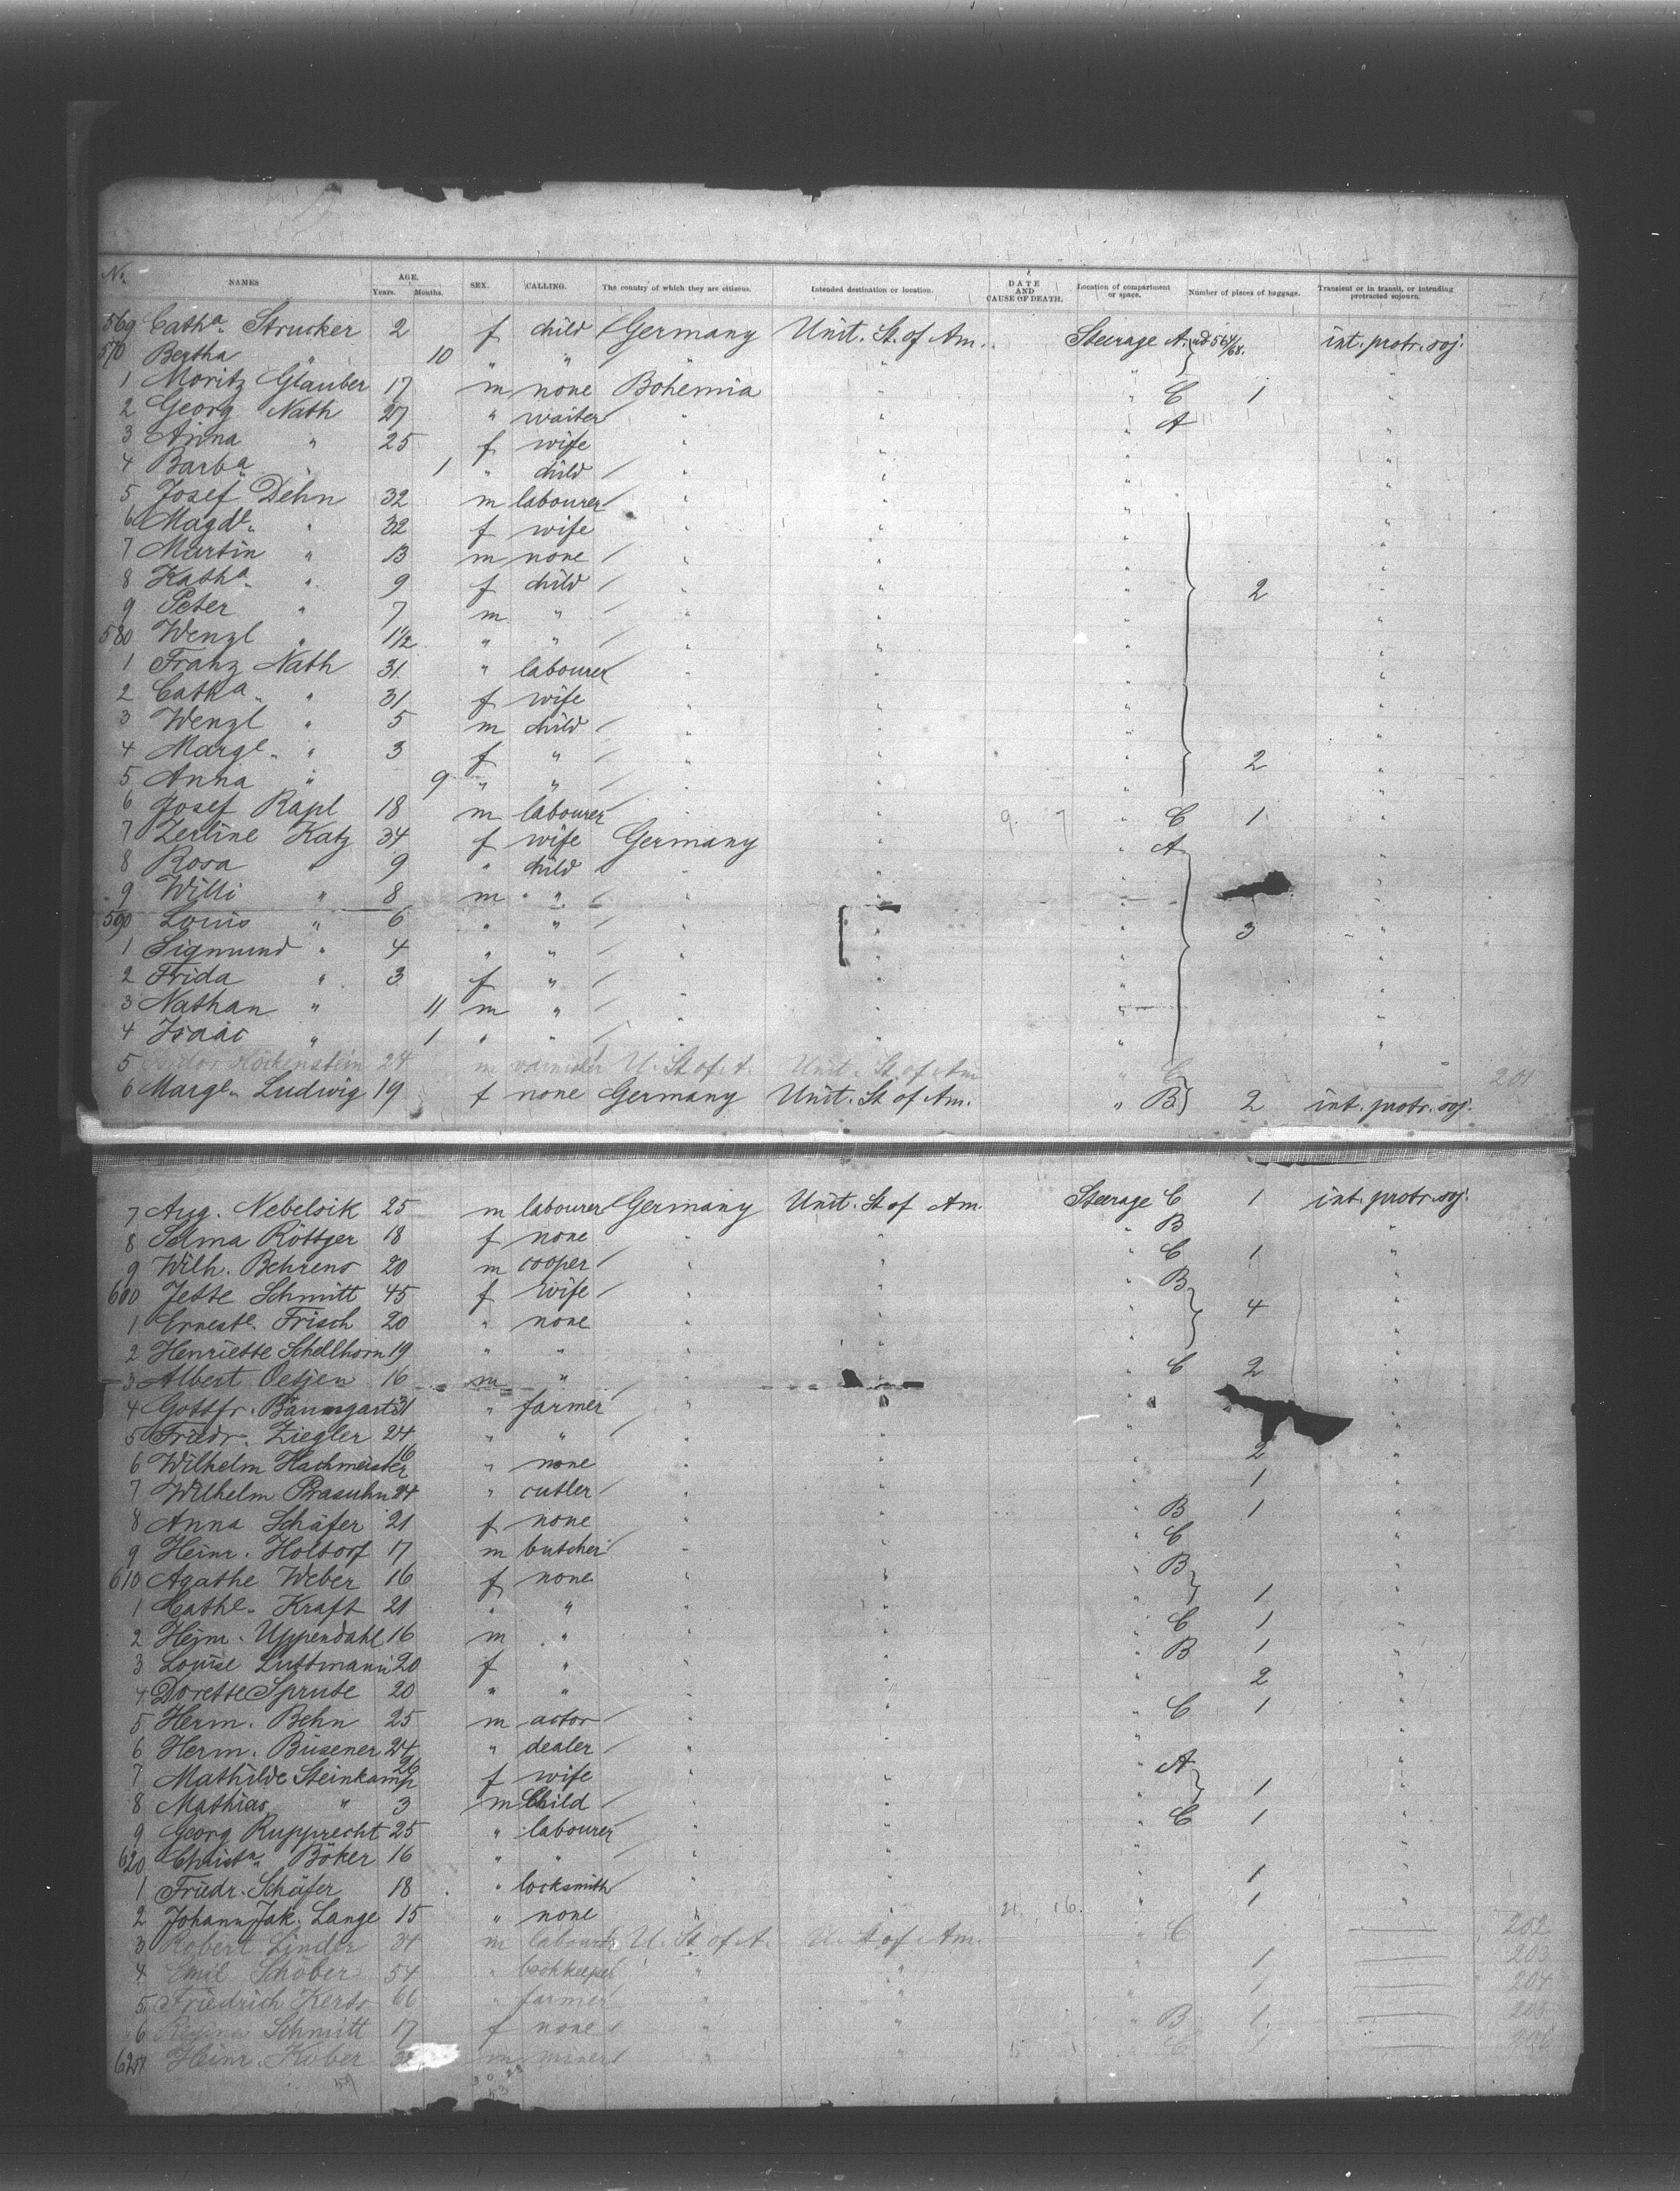 No. NAMES AGE. Years. Months. SEX. CALLING. The country of which they are citizens. Intended destination or location. DATE AND CAUSE OF DEATH. Location of compartment or space. Number of pieces of baggage. Transient or in transit, or intending protracted sojourn.
569 Catha. Strucker 2 f child Germany Unit. St. of Am. Steerage A. ad 564/68. int. protr. soj.
570 Bertha " 10 " " " " "
1 Moritz Glauber 17 m none Bohemia " " C 1 "
2 Georg Nath 27 " waiter " " " A "
3 Anna " 25 f wife " " " "
4 Barba. " 1 " child " " " "
5 Josef Dehn 32 m labourer " " " "
6 Magdl. " 32 f wife " " " "
7 Martin " 13 m none " " " "
8 Katha. " 9 f child " " " 2 "
9 Peter " 7 m " " " " "
580 Wenzl " 1 1/2 " " " " " "
1 Franz Nath 31 " labourer " " " "
2 Catha. " 31 f wife " " " "
3 Wenzl " 5 m child " " " "
4 Margl. " 3 f " " " " 2 "
5 Anna " 9 " " " " " "
6 Josef Rapl 18 m labourer " " " C 1 "
7 Zerline Katz 34 f wife Germany " " A "
8 Rosa " 9 " child " " " "
9 Willi " 8 m " " " " "
590 Louis " 6 " " " " " 3 "
1 Sigmund " 4 " " " " " "
2 Frida " 3 f " " " " "
3 Nathan " 11 m " " " " "
4 Isaac " 1 " " " " " "
5 Höckenstein 24 m U. St. of A. Unit. St. of Am. " C 201
6 Margl. Ludwig 19 f none Germany Unit. St. of Am. " B 2 int. protr. soj.
7 Aug. Nebelsik 25 m labourer Germany Unit. St. of Am. Steerage C 1 int. protr. soj.
8 Selma Röttger 18 f none " " " B "
9 Wilh. Behrens 20 m cooper " " " C 1 "
600 Jette Schmitt 45 f wife " " " B "
1 Ernestl. Frisch 20 " none " " " 4 "
2 Henriette Schellhorn 19 " " " " " "
3 Albert Oetjen 16 m " " " " C 2 "
4 Gottfr. Baumgart 31 " farmer " " " "
5 Friedr. Ziegler 24 " " " " " "
6 Wilhelm Hachmeister 16 " none " " " 2 "
7 Wilhelm Prasuhn 24 " cutler " " " 1 "
8 Anna Schäfer 21 f none " " " B 1 "
9 Heinr. Holtorf 17 m butcher " " " C "
610 Agathe Weber 16 f none " " " B "
1 Cathl. Kraft 21 " " " " " 1 "
2 Heinr. Uppendahl 16 m " " " " C 1 "
3 Louise Luttmann 20 f " " " " B 1 "
4 Dorette Sprute 20 " " " " " 2 "
5 Herm. Behn 25 m actor " " " C 1 "
6 Herm. Büsener 24 " dealer " " " "
7 Mathilde Steinkamp 26 f wife " " " A "
8 Mathias " 3 m Child " " " 1 "
9 Georg Rupprecht 25 " labourer " " " C 1 "
620 Christn. Böker 16 " " " " " "
1 Friedr. Schäfer 18 " locksmith " " " 1 "
2 Johann Jak. Lange 15 " none " " " 1 "
3 Robert Linder 34 m labourer U. St. of A. U. St. of Am. " C 202
4 Emil Schober 54 " bookkeeper " " " 1 203
5 Friedrich Kerts 66 " farmer " " 204
6 Schmitt 17 f none " " " B 1 205
627 Heinr. Kober m miner " " " C